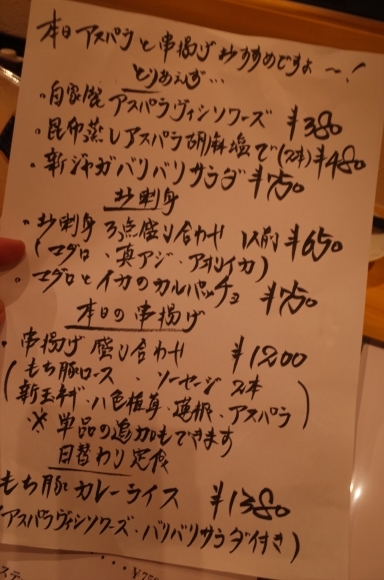 本日アスパラと串揚げおすすめですよ〜!
とりあえず…
・自家製アスパラヴィシソワーズ ¥380
・昆布蒸しアスパラ胡麻塩で(2本)¥480
・新ジャガバリバリサラダ ¥750
お刺身
・お刺身3点盛り合わせ 1人前 ¥650
(マグロ・真アジ・アオリイカ)
・マグロとイカのカルパッチョ ¥750
本日の串揚げ
・串揚げ盛り合わせ ¥1200
(もち豚ロース・ソーセージ2本
新玉ネギ・八色椎茸・蓮根・アスパラ)
※単品の追加もできます
日替わり定食
もち豚カレーライス ¥1380
(アスパラヴィシソワーズ・バリバリサラダ付き)